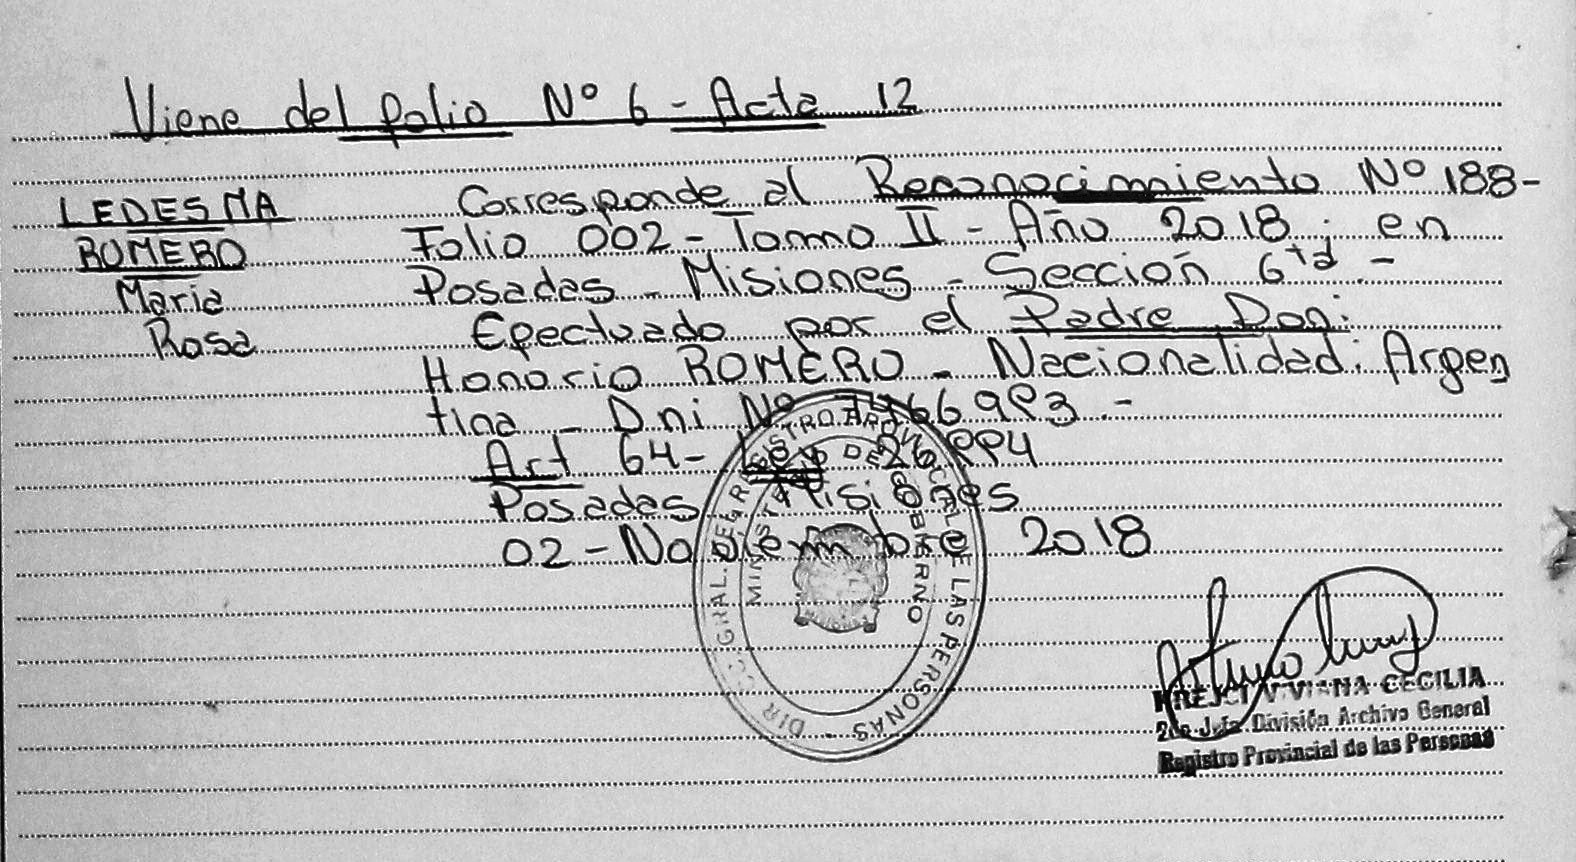 Viene del folio Nº 6 - Acta 12
LEDESMA
ROMERO
Maria
Rosa
Corresponde al Reconocimiento Nº 188-
Folio 002 - Tomo II - Año 2018; en
Posadas - Misiones - Sección 6ta -
Efectuado por el Padre Don:
Honorio ROMERO - Nacionalidad: Argen
tina - Dni Nº 7466993.-
Art 64 - Ley 26994
Posadas Misiones
02 - Noviembre 2018
DIR. GRAL. DEL REGISTRO PROVINCIAL DE LAS PERSONAS
MINISTERIO DE GOBIERNO
KREJCI VIVIANA CECILIA
2da Jefa División Archivo General
Registro Provincial de las Personas